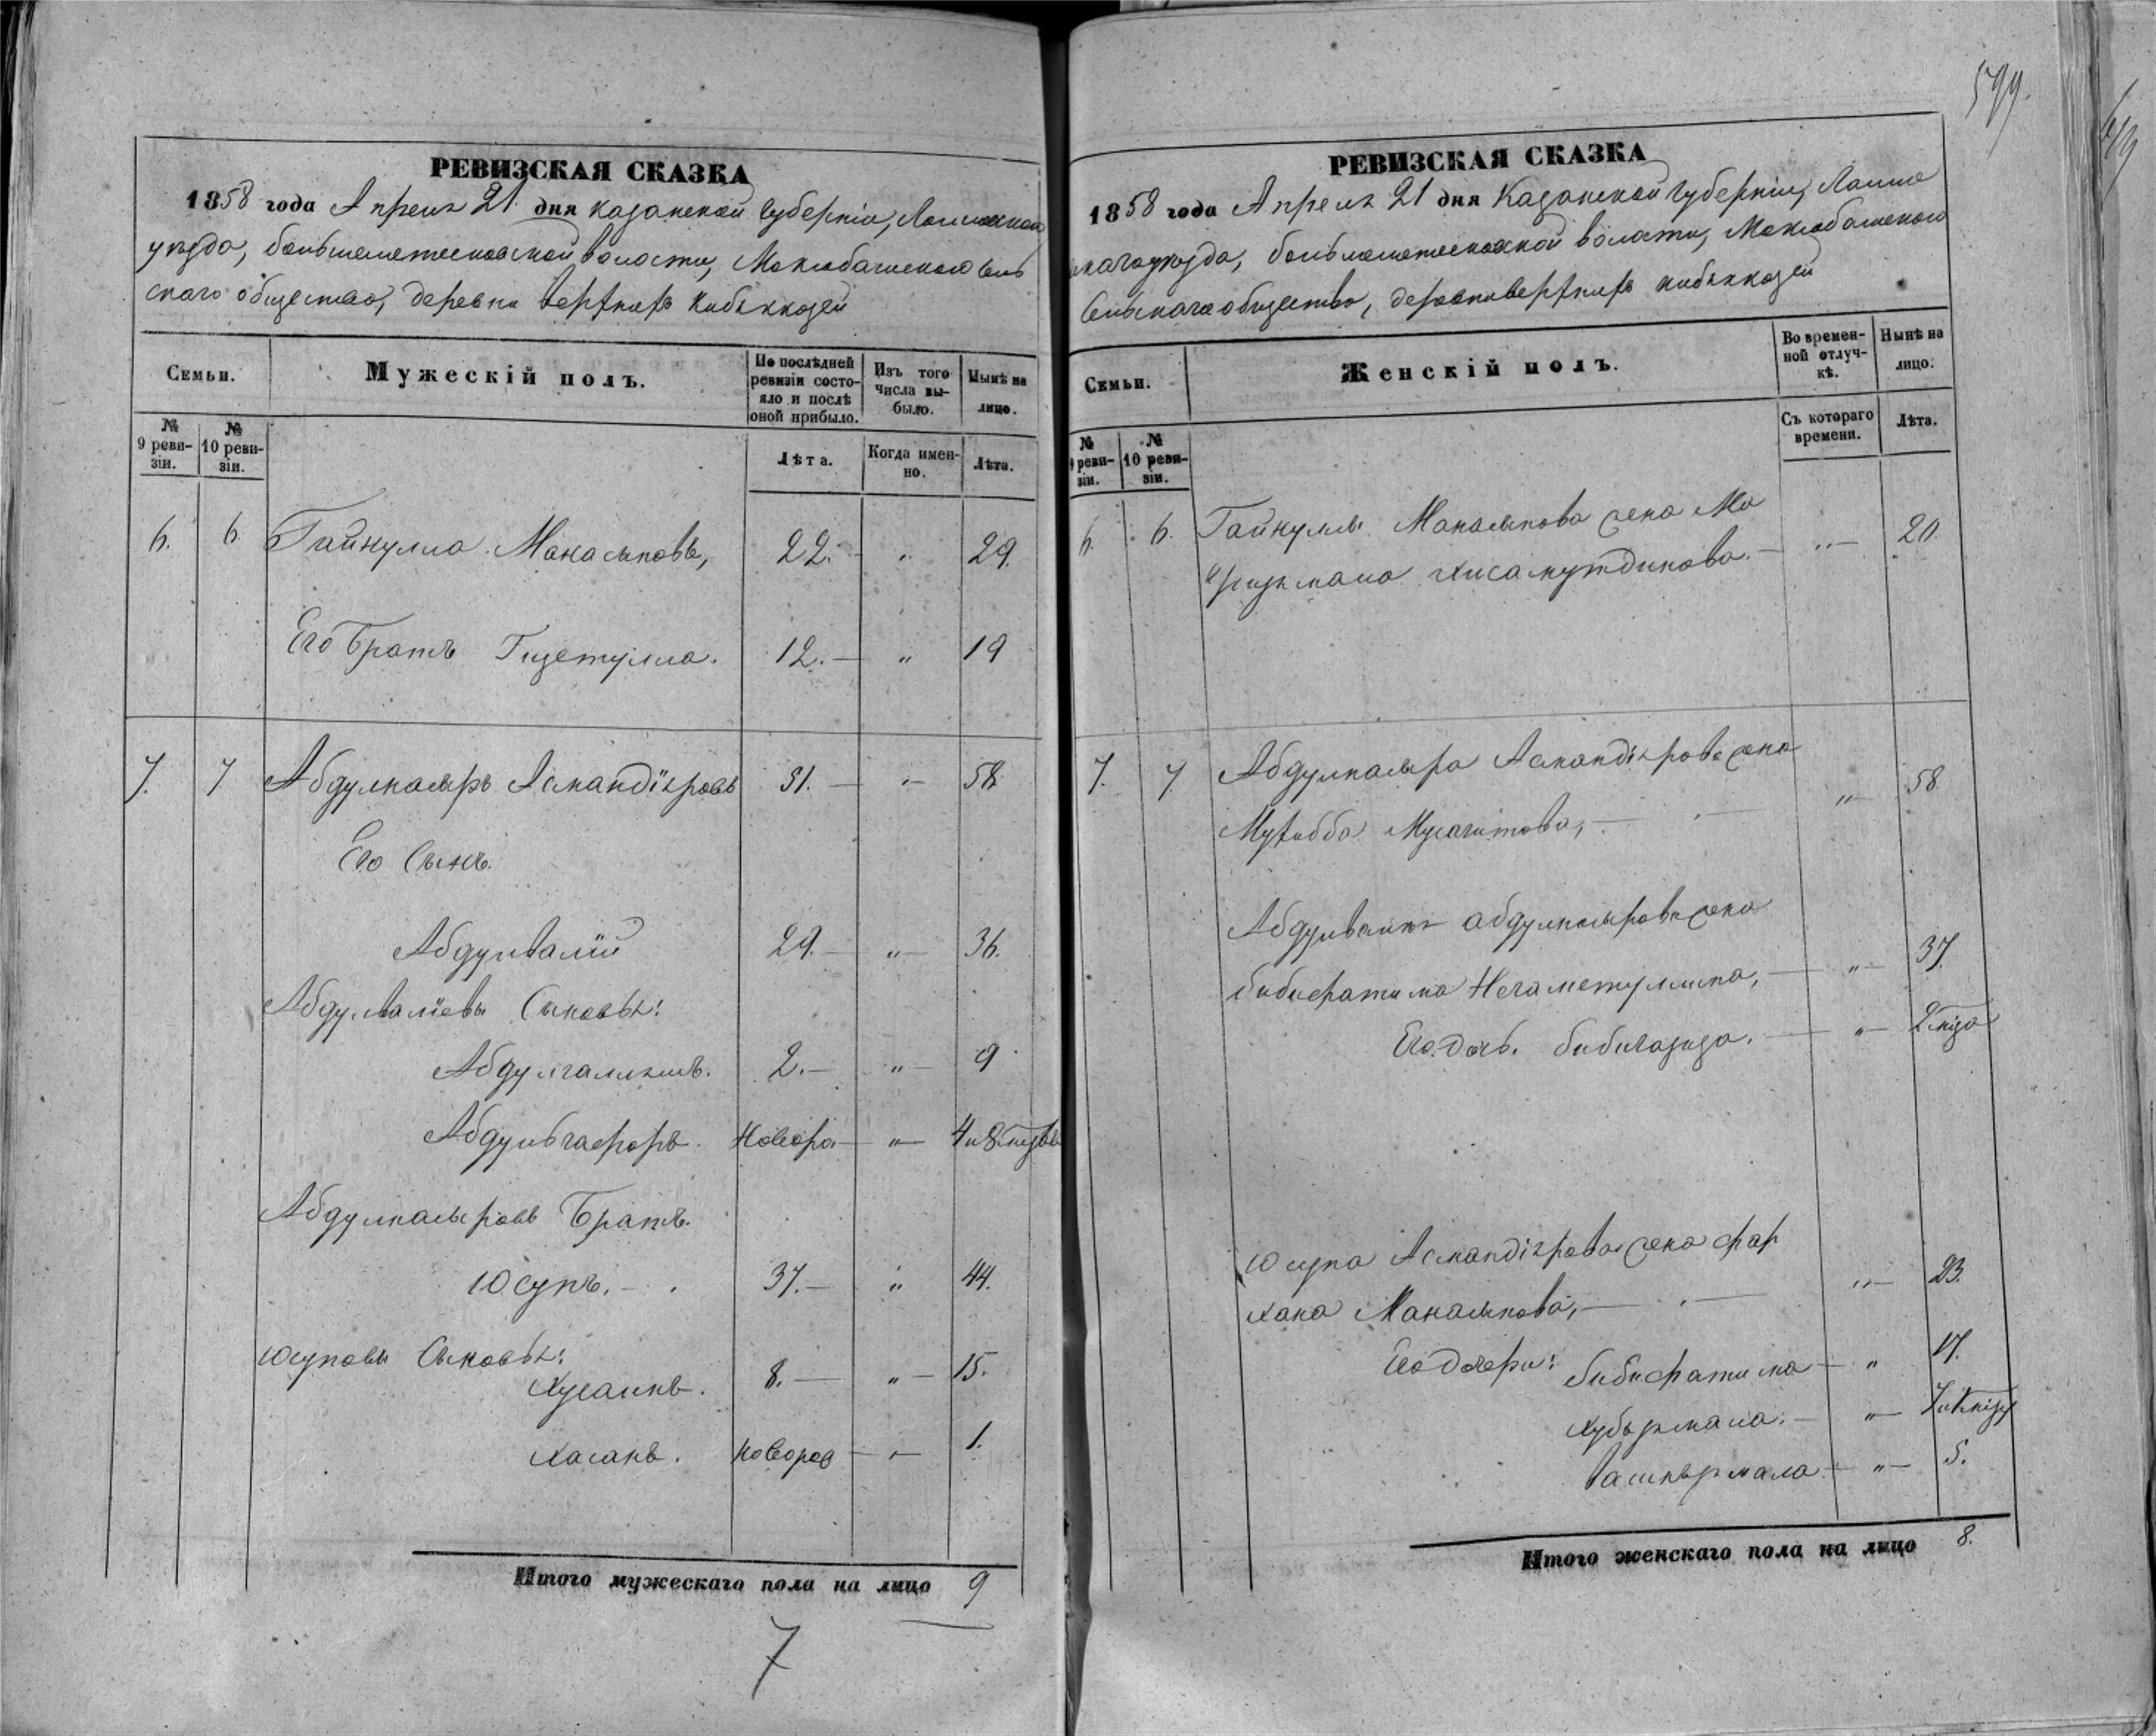 РЕВИЗСКАЯ СКАЗКА
1858 года Апреля 21 дня Казанской Губерніи, Лаишевскаго
уезда, большеметесковской волости, Маклабашскаго сель
скаго общества, деревни верхнихъ кибякказей
Семьи.
Мужескій полъ.
По послѣдней ревизіи состояло и послѣ оной прибыло.
Изъ того числа выбыло.
Нынѣ на лицо.
№ 9 ревизіи.
№ 10 ревизіи.
Лѣта.
Когда именно.
Лѣта.
6. 6. Гайнулла Манасыповъ, 22. „ 29.
Его Братъ Гизетулла. 12. — „ 19
7. 7 Абдулкасыръ Асмандіяровъ 51. — „ — 58
Его Сынъ.
Абдулвалій 29. — „ — 36.
Абдулваліевы Сыновья:
Абдулгалимъ. 2. — „ — 9
Абдульгафоръ. Новоро. — „ — 4
Абдулкасыровъ Братъ.
Юсупъ. — 37. — „ 44.
Юсуповы Сыновья:
Хусаинъ. 8. — „ — 15.
Хасанъ. новорож — „ — 1.
Итого мужескаго пола на лицо 9
7
599.
РЕВИЗСКАЯ СКАЗКА
1858 года Апреля 21 дня Казанской Губерніи, Лаише
скагоуезда, большеметесковской волости, Маклабашскаго
Сельскагообщества, деревниверхнихъ кибякказей
Семьи.
Женскій полъ.
Во временной отлучкѣ.
Нынѣ на лицо.
№ 9 ревизіи.
№ 10 ревизіи.
Съ котораго времени.
Лѣта.
6. 6. Гайнуллы Манасыпова жена Ма
Хисамутдинова. — „ — 20.
7. 7 Абдулкасыра Асмандіярова жена
Мухибба Мусагитова, — „ — 58
Абдулвалія абдулкасырова жена
бибифатима Негаметуллина, — „ — 37.
Его дочь. бибигазиза. — „ — 2
Юсупа Асмандіярова жена фар
хана Манасыпова, — „ — 23.
Его дочери: бибифатима — „ 17.
Хубъямала. — „ — 7
5.
Итого женскаго пола на лицо 8.